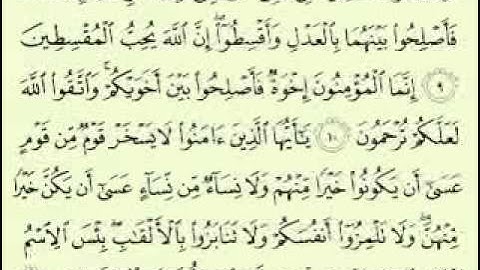 فَأَصْلِحُوا۟ بَيْنَهُمَا بِٱلْعَدْلِ وَأَقْسِطُوٓا۟ۖ إِنَّ ٱللَّهَ يُحِبُّ ٱلْمُقْسِطِينَ
٩ إِنَّمَا ٱلْمُؤْمِنُونَ إِخْوَةٌ فَأَصْلِحُوا۟ بَيْنَ أَخَوَيْكُمْۚ وَٱتَّقُوا۟ ٱللَّهَ
لَعَلَّكُمْ تُرْحَمُونَ ١٠ يَٰٓأَيُّهَا ٱلَّذِينَ ءَامَنُوا۟ لَا يَسْخَرْ قَوْمٌ مِّن قَوْمٍ
عَسَىٰٓ أَن يَكُونُوا۟ خَيْرًا مِّنْهُمْ وَلَا نِسَآءٌ مِّن نِّسَآءٍ عَسَىٰٓ أَن يَكُنَّ خَيْرًا
مِّنْهُنَّۖ وَلَا تَلْمِزُوٓا۟ أَنفُسَكُمْ وَلَا تَنَابَزُوا۟ بِٱلْأَلْقَٰبِۖ بِئْسَ ٱلِٱسْمُ